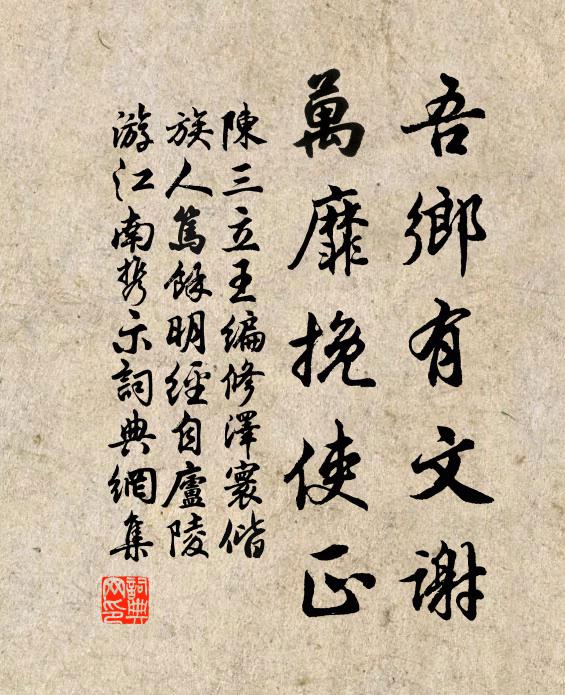 吾鄉有文謝
萬靡挽使正
陳三立王編修澤寰偕
族人篤餘明經自廬陵
游江南携示詞典網集
詞典網印